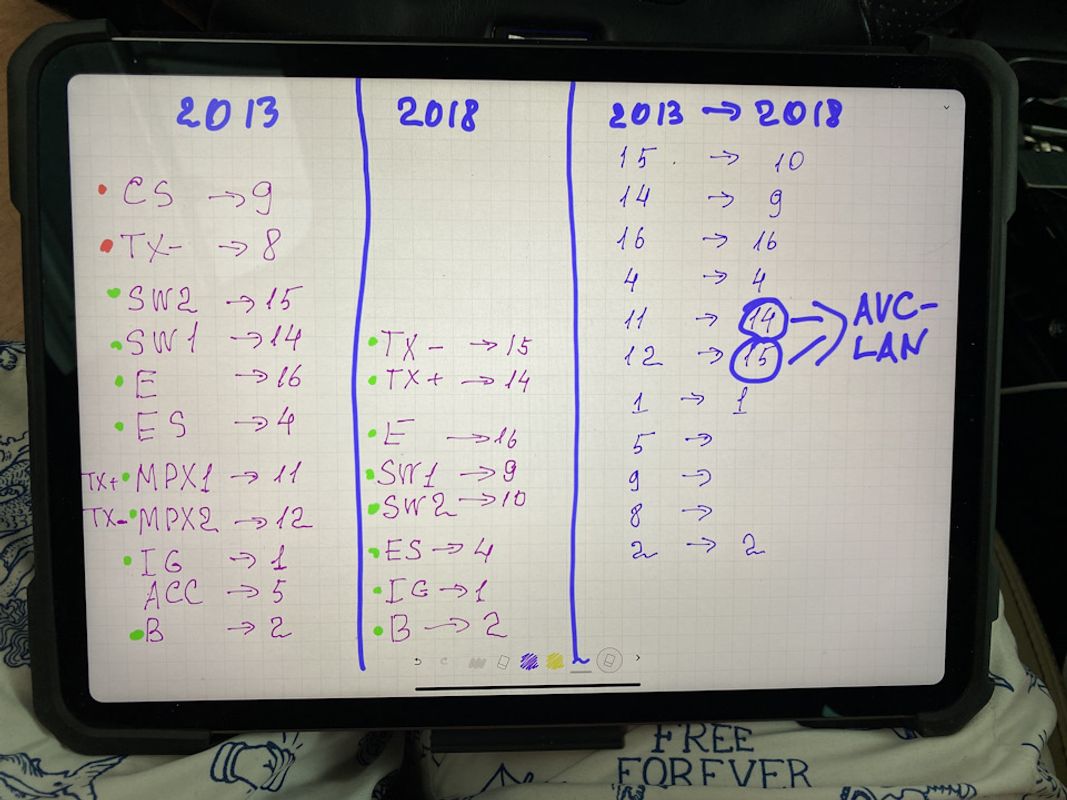 2013
CS → 9
TX- → 8
SW2 → 15
SW1 → 14
E → 16
ES → 4
TX+ MPX1 → 11
TX- MPX2 → 12
IG → 1
ACC → 5
B → 2
2018
TX- → 15
TX+ → 14
E → 16
SW1 → 9
SW2 → 10
ES → 4
IG → 1
B → 2
2013 → 2018
15 → 10
14 → 9
16 → 16
4 → 4
11 → 14
12 → 15
AVC-
LAN
1 → 1
5 →
9 →
8 →
2 → 2
FREE
FOREVER